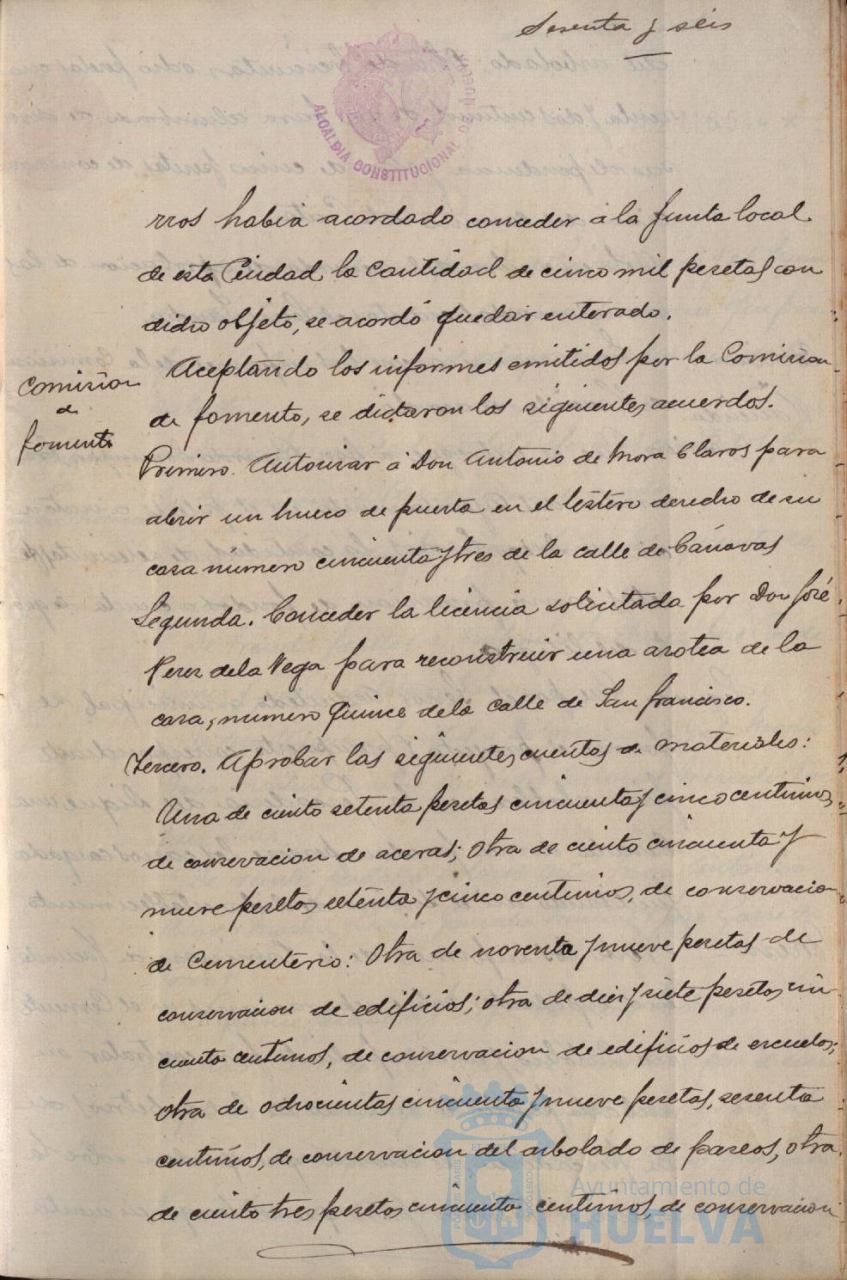 Sesenta y seis
ALCALDIA CONSTITUCIONAL DE HUELVA
rros habia acordado conceder á la Junta local
de esta Ciudad la cantidad de cinco mil pesetas con
dicho objeto, se acordó quedar enterado.
Comision
de
fomento
Aceptando los informes emitidos por la Comision
de fomento, se dictaron los siguientes acuerdos.
Primero. Autorizar á Don Antonio de Mora Claros para
abrir un hueco de puerta en el testero derecho de su
casa número cincuenta y tres de la calle de Cánovas
Segunda. Conceder la licencia solicitada por Don José
Perez de la Vega para reconstruir una azotea de la
casa, número quince de la calle de San Francisco.
Tercero. Aprobar las siguientes cuentas de materiales:
Una de ciento setenta pesetas cincuenta y cinco centimos,
de conservacion de aceras; otra de ciento cincuenta y
nueve pesetas setenta y cinco centimos, de conservacion
de Cementerio: Otra de noventa y nueve pesetas de
conservacion de edificios; otra de diez y siete pesetas cin
cuenta centimos, de conservacion de edificios de escuelas;
otra de ochocientas cincuenta y nueve pesetas, sesenta
centimos, de conservacion del arbolado de paseos, otra
de ciento tres pesetas cincuenta centimos, de conservacion
Ayuntamiento de
HUELVA